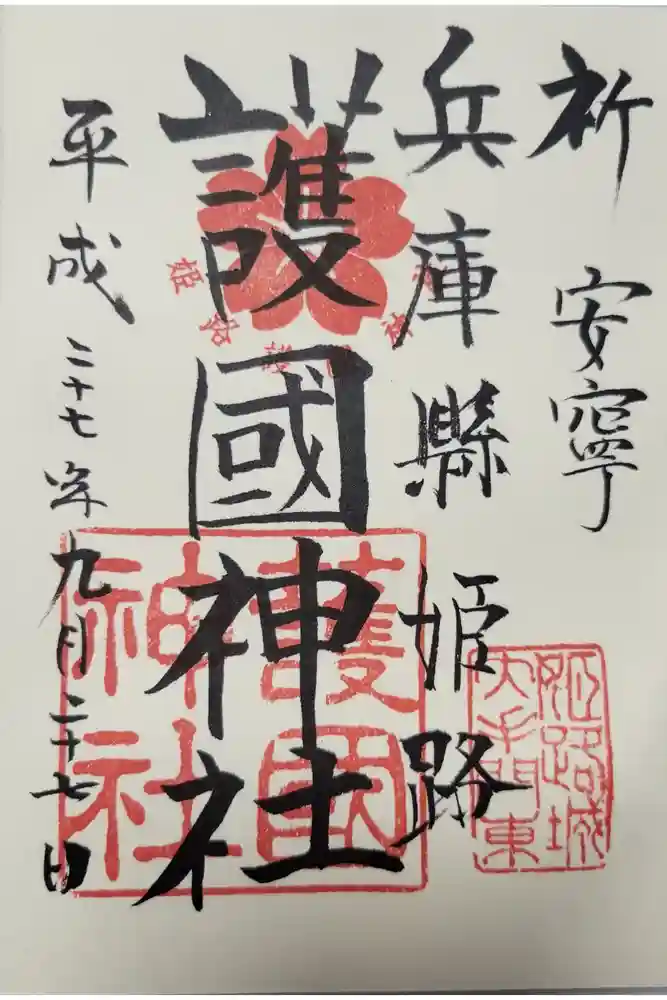 祈 安寧
兵庫縣姫路
護國神社
平成二十七年九月二十七日
姫路城
大手門東
護國
神社